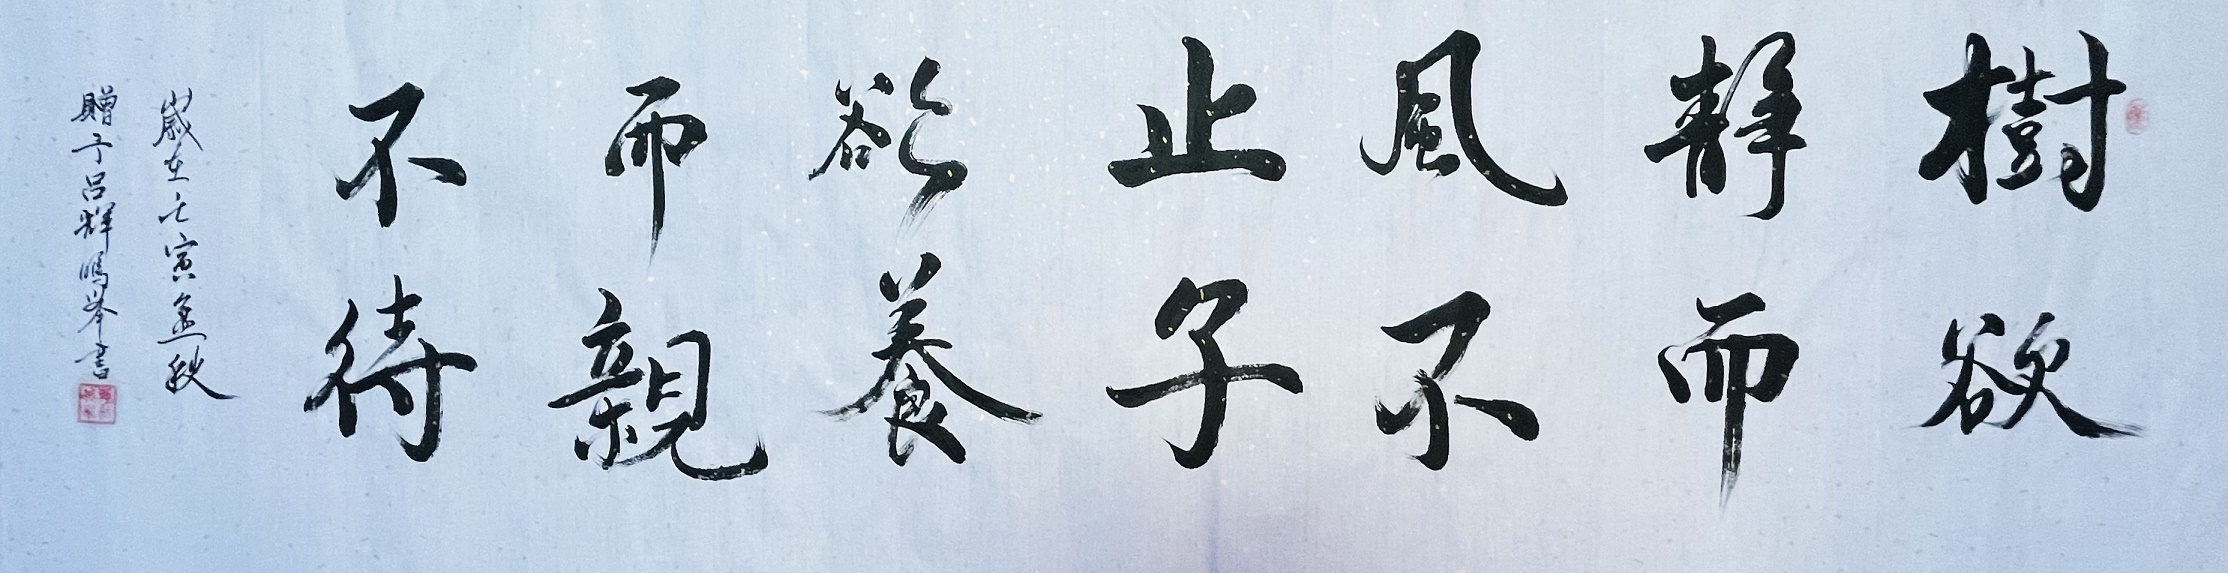 樹欲
靜而
風不
止子
欲養
而親
不待
歲在壬寅金秋
贈予呂輝鳴岑書